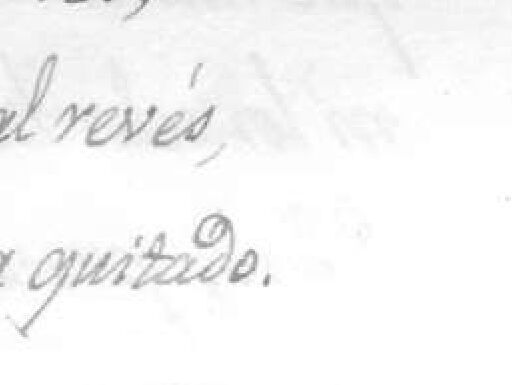 al revés,
a quitado.